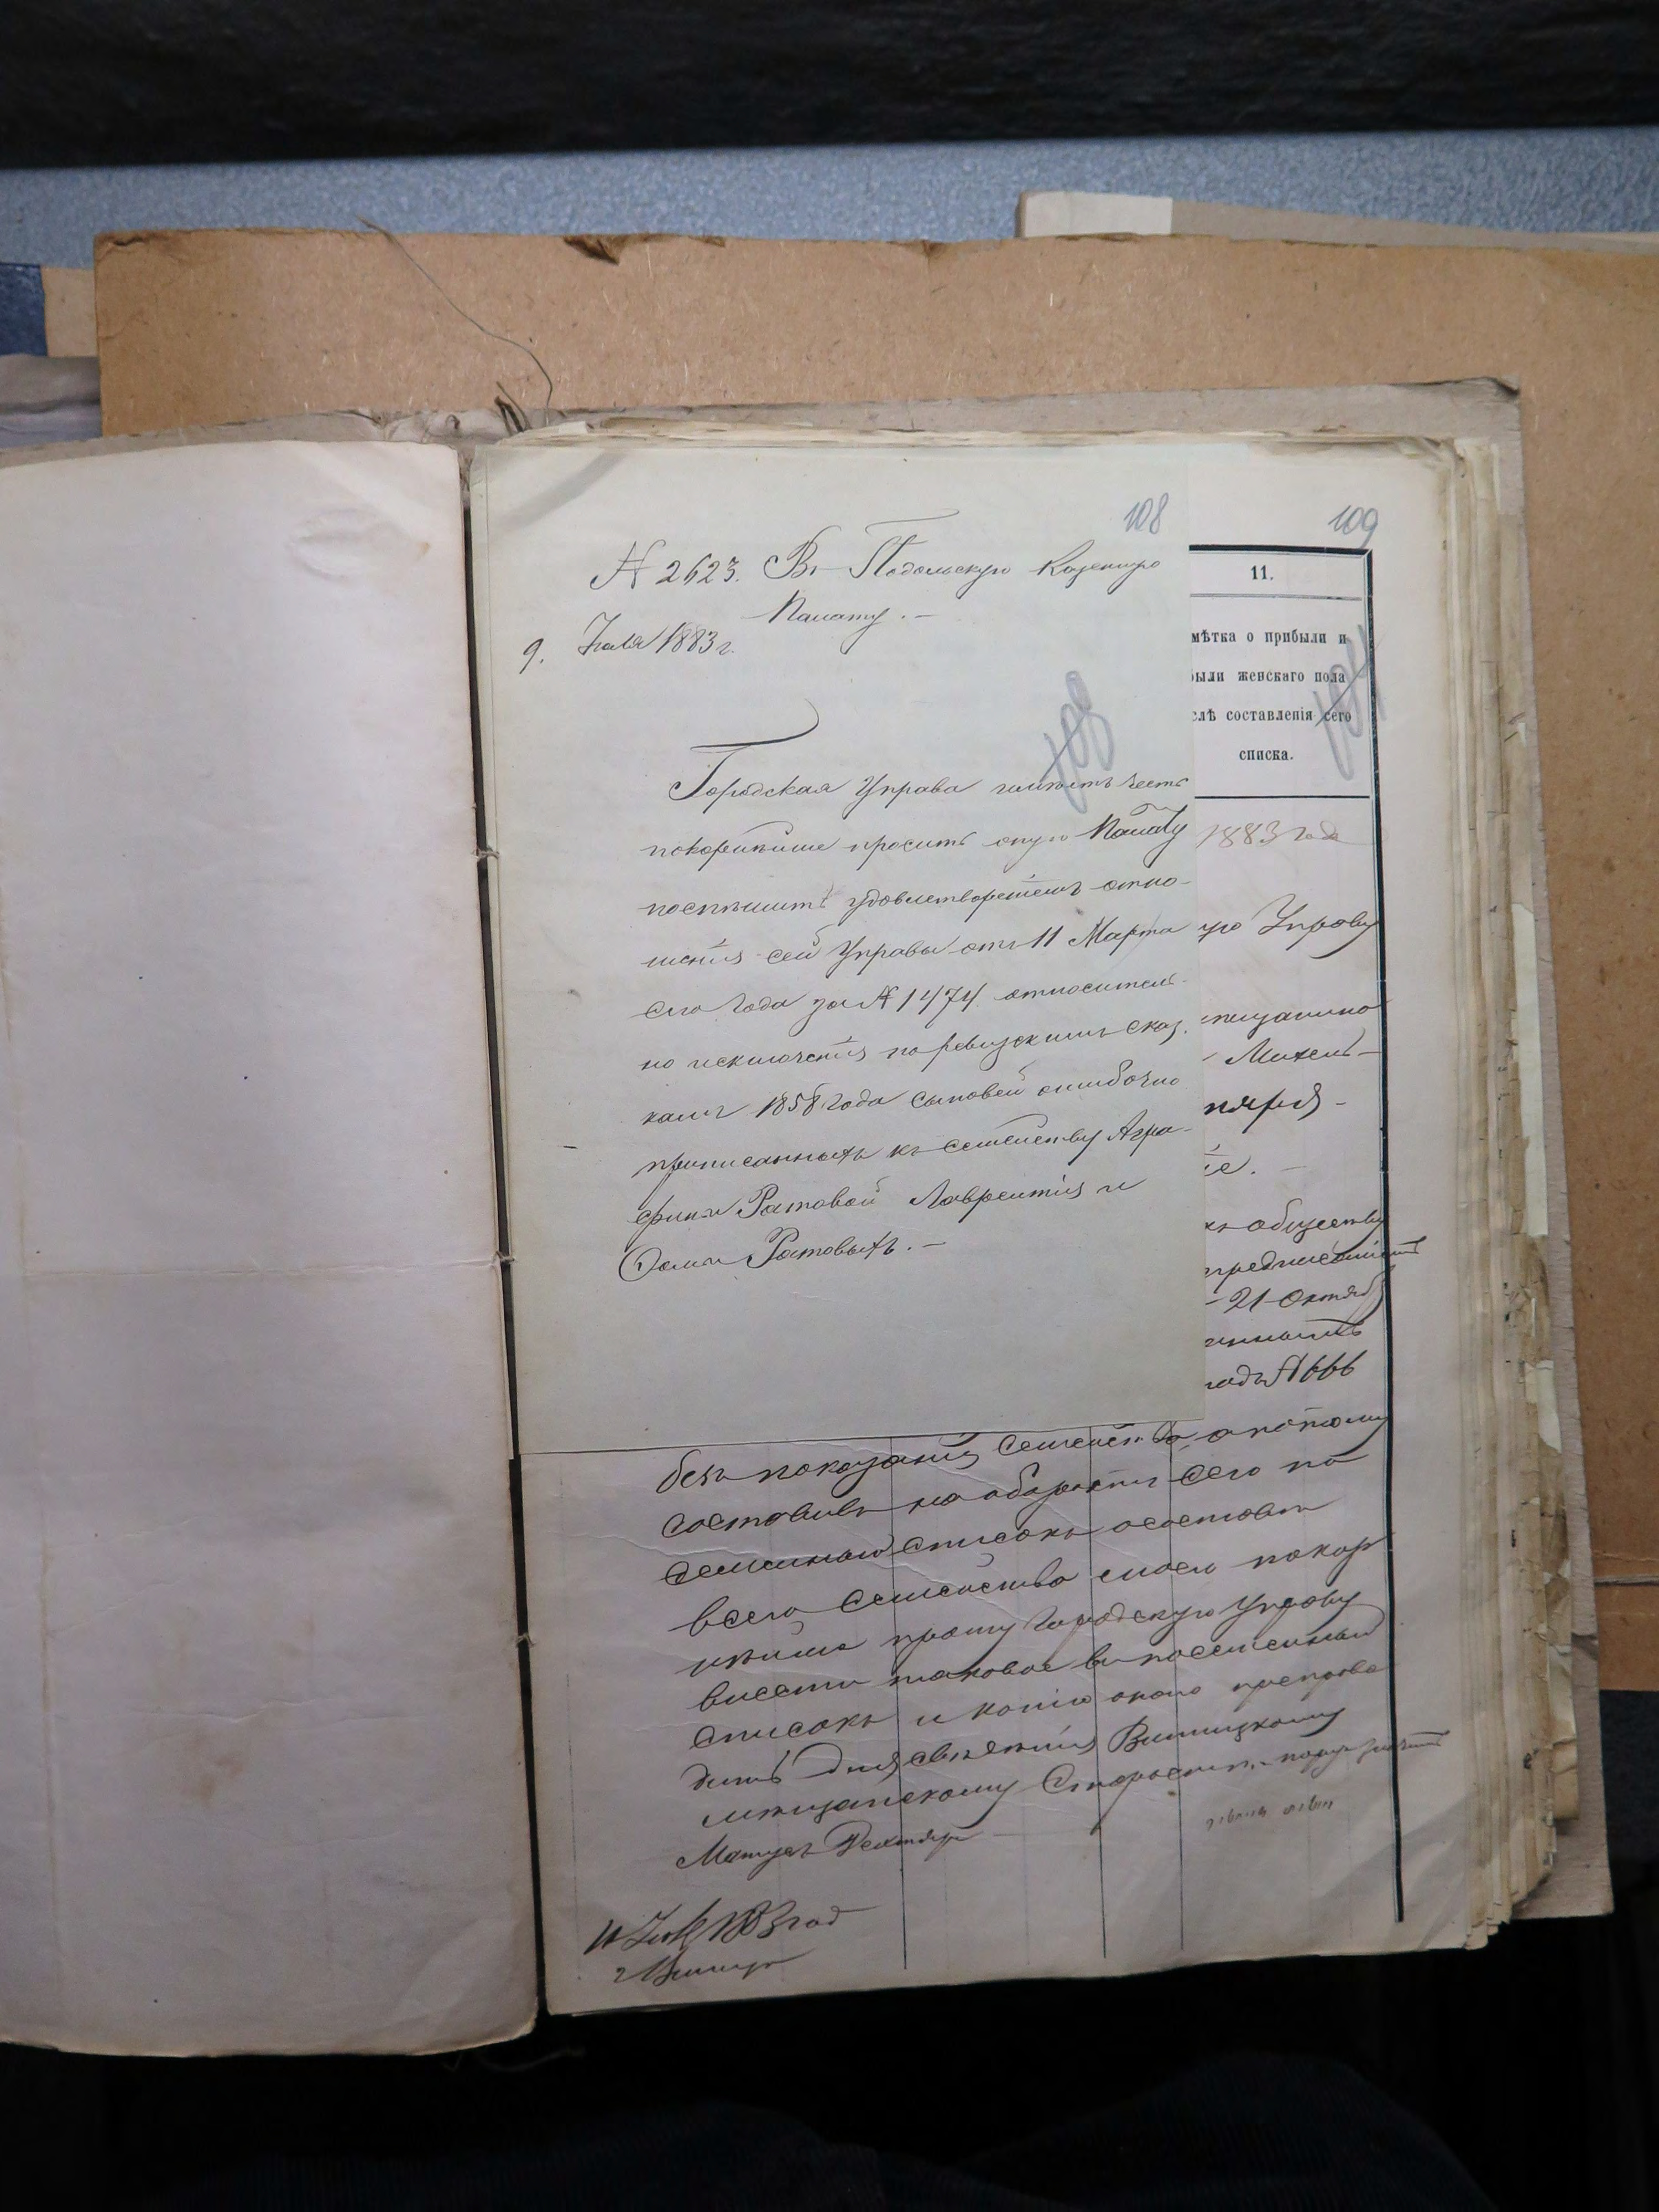 108
№ 2623. Въ Подольскую Казенную
Палату. —
9. Іюля 1883 г.
108
Городская Управа имѣетъ честь
покорнѣйше просить оную Палату
поспѣшить удовлетвореніемъ отно-
шенія сей Управы отъ 11 Марта
сего года за № 1474 относитель-
но исключенія по ревизскимъ сказ-
камъ 1858 года сыновей ошибочно
приписанныхъ къ семейству Агра-
фины Ратовой Лаврентія и
Фомы Ратовыхъ. —
109
11.
мѣтка о прибыли и
были женскаго пола
слѣ составленія сего
списка.
1883 года
ую Управу
мещанина
Михель-
ія.
къ обществу
21 Октяб
годъ № 666
безъ показанія семейства, а потому
составивъ на оборотѣ сего по
семейный списокъ о составѣ
всего семейства моего покор
нѣйше прошу Городскую Управу
внести таковое въ посемейный
списокъ и копію онаго препрово
дить для свѣденія Винницкому
мѣщанскому Старостѣ.
1883 год
г Винница